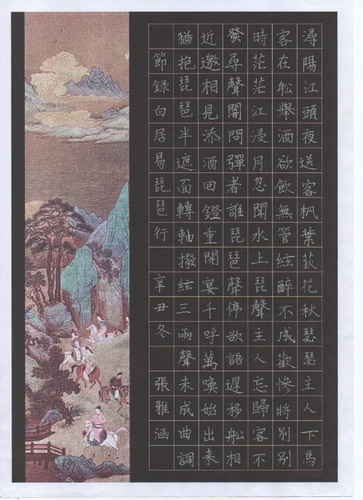 潯陽江頭夜送客枫葉荻花秋瑟瑟主人下馬
客在船舉酒欲飲無管絃醉不成歡慘將別別
時茫茫江浸月忽聞水上琵聲主人忘歸客不
發尋聲闇問彈者誰琵琶聲停欲語遲移船相
近邀相見添酒回鐙重開宴千呼萬喚始出來
猶抱琵琶半遮面轉軸撥絃三兩聲未成曲調
節録白居易琵琶行 辛丑冬 張雅涵